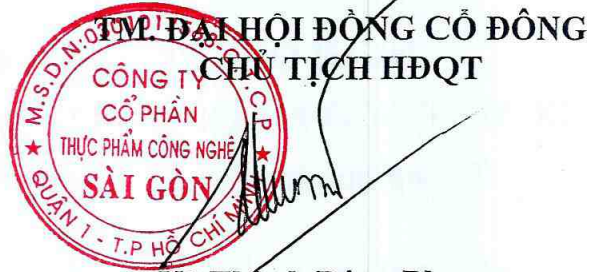 TM. ĐẠI HỘI ĐỒNG CỔ ĐÔNG
CHỦ TỊCH HĐQT
M.S.D.N:
C.T.C.P
CÔNG TY
CỔ PHẦN
THỰC PHẨM CÔNG NGHỆ
SÀI GÒN
QUẬN 1 - T.P HỒ CHÍ MINH